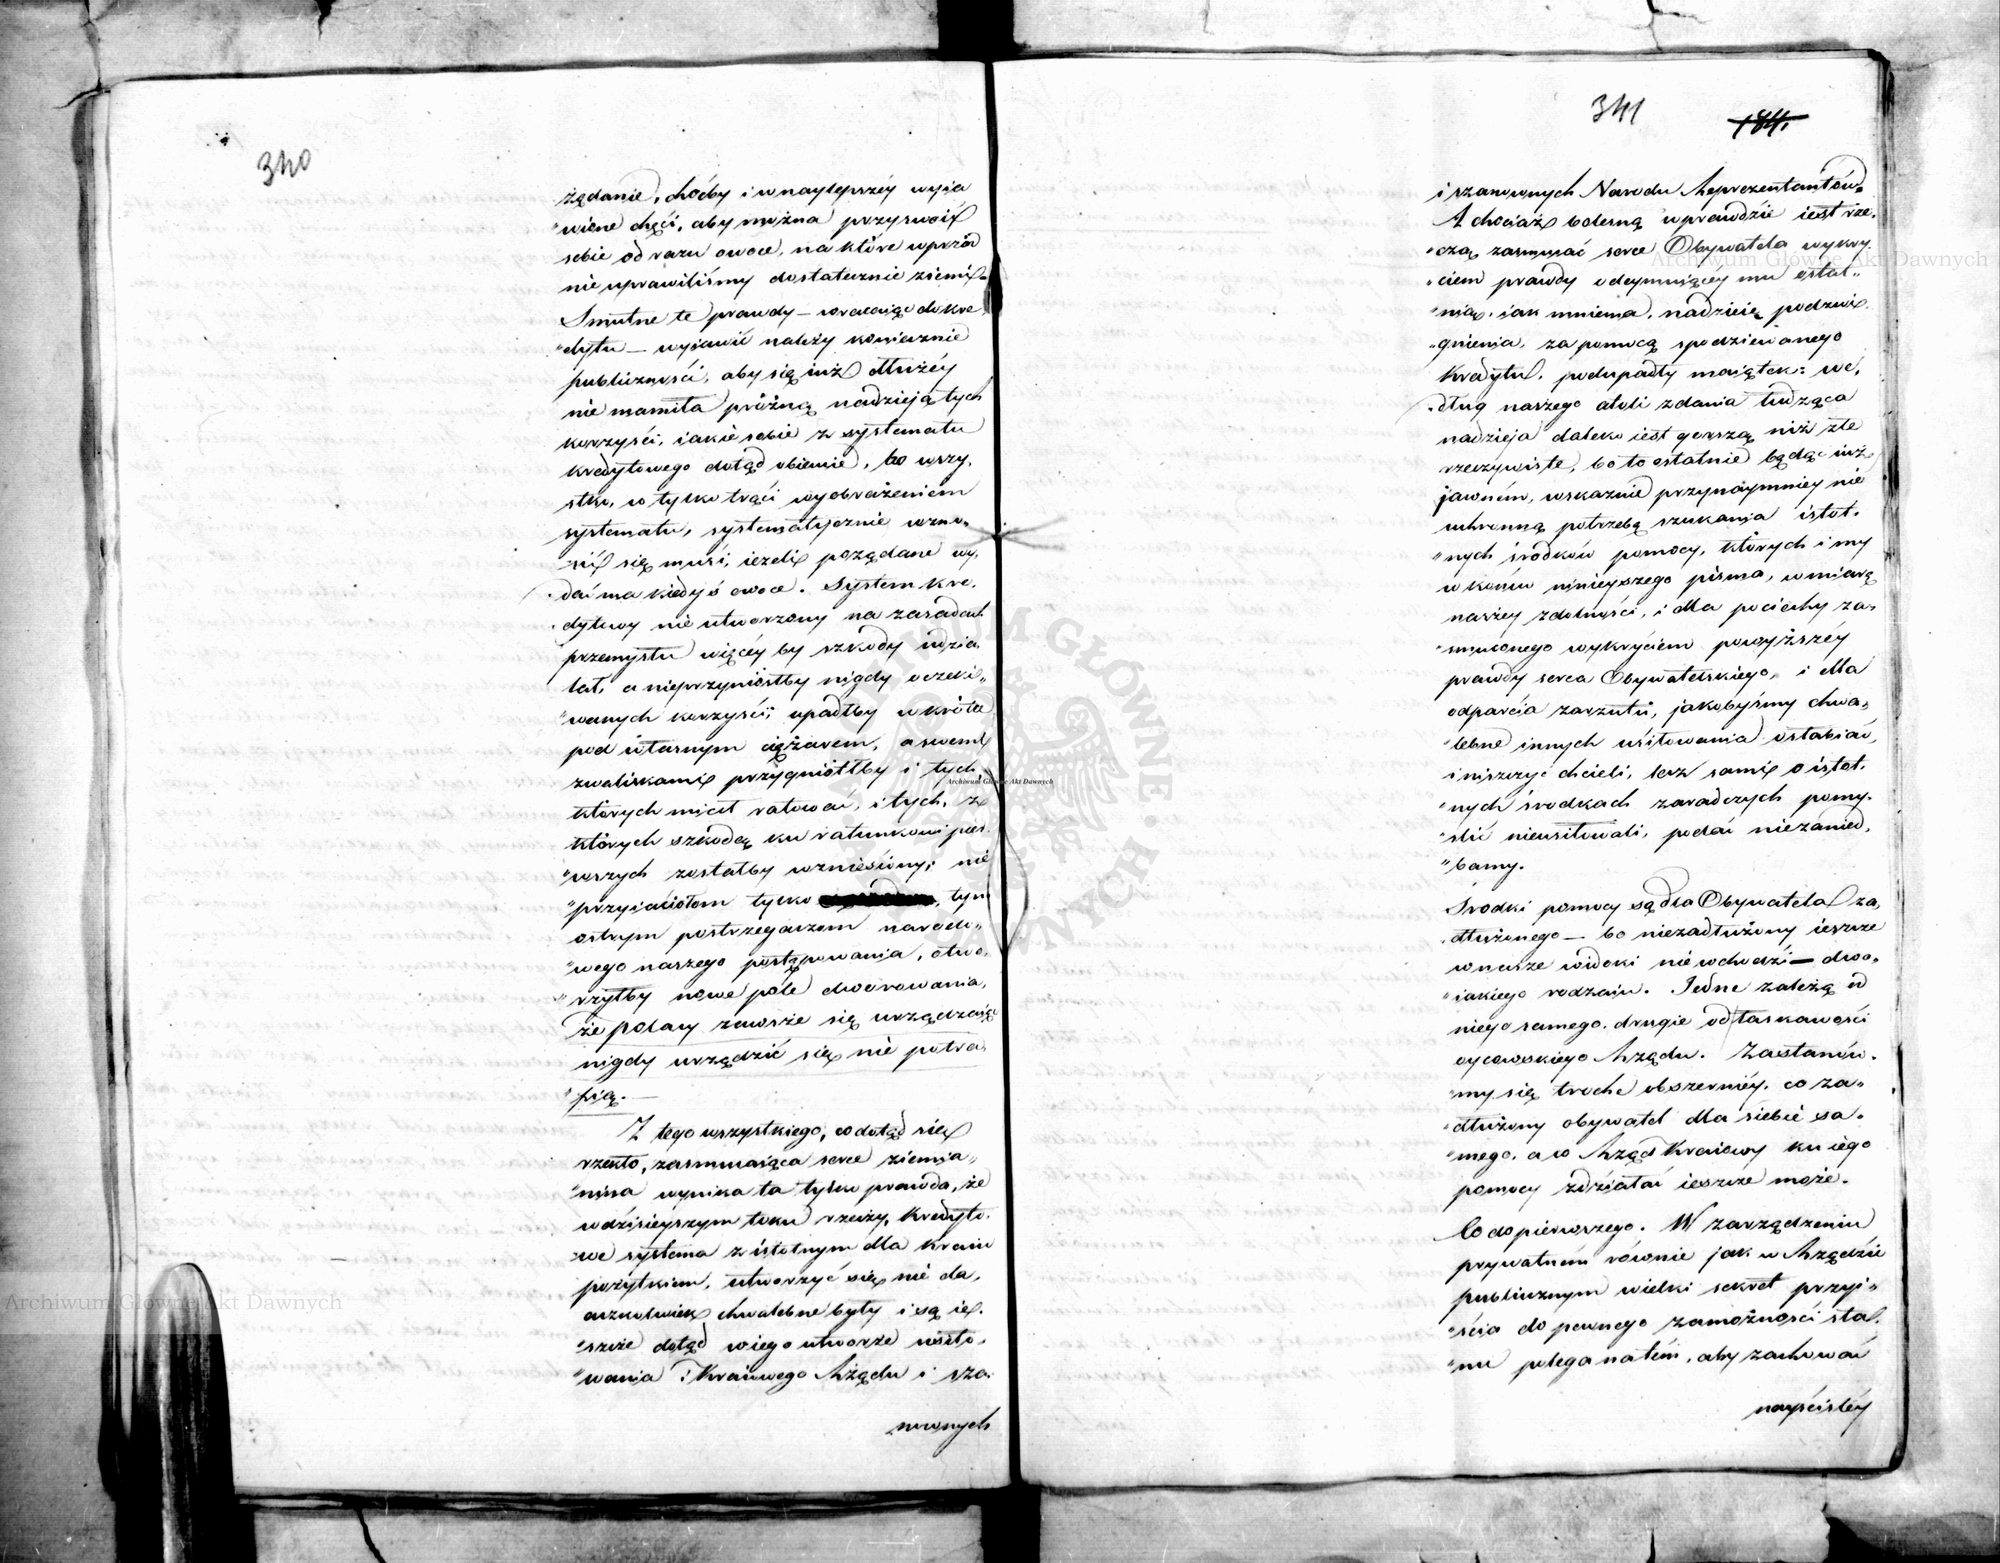 340
żądanie, choćby i w naylepszéy wyia
"wione chęci, aby można przyswoić
sobie od razu owoce, na które wprzód
nie uprawiliśmy dostatecznie ziemi.
Smutne te prawdy — wracaiąc do kre
"dytu — wyiawić należy koniecznie
publiczności, aby się iuż dłużéy
nie mamiła próżną nadzieją tych
korzyści, iakie sobie z systematu
kredytowego dotąd obiecuie, bo wszy,
stko, co tylko trąci wyobrażeniem
systematu, systematycznie wzno,
sić się musi, ieżeli pożądane wy,
dać ma kiedyś owoce. System kre,
dytowy nie utworzony na zasadach
przemysłu więcéy by szkody zdzia
łał, a nieprzyniósłby nigdy oczeki„
"wanych korzyści; upadłby wkrótce
pod własnym ciężarem, a swemi
zwaliskami przygniótłby i tych,
których miał ratować, i tych, z
których szkodą ku ratunkowi pier.
"wszych zostałby wzniesiony; nie
"przyiaciołom tylko , tym
ostrym postrzegaczom narodo„
"wego naszego postępowania, otwo,
rzyłby nowe pole dworowania,
że polacy zawsze się urządzaiąc
nigdy urządzić się nie potra,
"fią. —
Z tego wszystkiego, co dotąd się
rzekło, zasmucaiąca serce ziemia„
"nina wynika ta tylko prawda, że
w dzisieyszym toku rzeczy, kredyto,
"we systema z istotnym dla kraiu
pożytkiem, utworzyć się nie da,
aczkolwiek chwalebne były i są ie,
"szcze dotąd w iego utworze usiło,
"wania Kraiowego Rządu i sza,
nownych
341
184.
i szanownych Narodu Reprezentantów.
A chociaż bolesną wprawdzie iest rze,
"czą zasmucać serce Obywatela wykry,
"ciem prawdy odeymuiącéy mu ostat„
"nią, iak mniema, nadzieię podzwi,
"gnienia, za pomocą spodziewanego
kredytu, podupadły maiątek: we,
dług naszego atoli zdania łudząca
nadzieja daleko iest gorszą niż złe
rzeczywiste, bo to ostatnie będąc iuż
jawném, wskazuie przynaymniey nie
uchronną potrzebę szukania istot,
"nych środków pomocy, których i my
w końcu ninieyszego pisma, w miarę
naszey zdolności, i dla pociechy za,
"smuconego wykryciem powyższéy
prawdy serca Obywatelskiego, i dla
odparcia zarzutu, jakobyśmy chwa„
"lebne innych usiłowania osłabiać,
i niszczyć chcieli, lecz sami o istot,
"nych środkach zaradczych pomy,
"slić nieusiłowali, podać niezanied,
"bamy.
Środki pomocy są dla Obywatela za,
dłużonego — bo niezadłużony ieszcze
w nasze widoki nie wchodzi — dwo„
"iakiego rodzaiu. Jedne zależą od
niego samego, drugie od łaskawości
oycowskiego Rządu. Zastanów,
"my się troche obszerniéy, co za„
dłużony obywatel dla siebie sa,
"mego, a co Rząd Kraiowy ku iego
pomocy zdziałać ieszcze może.
Co do pierwszego. W zarządzeniu
prywatném równie jak w Rządzie
publicznym wielki sekret przyi„
"ścia do pewnego zamożności sta,
"nu polega na tém, aby zachować
nayściśléy
Archiwum Główne Akt Dawnych
Archiwum Główne Akt Dawnych
Archiwum Główne Akt Dawnych